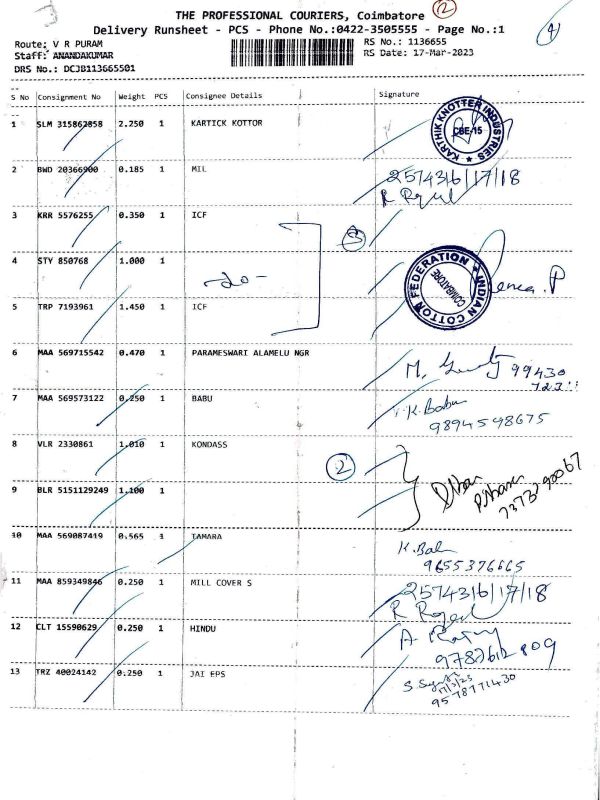 THE PROFESSIONAL COURIERS, Coimbatore
12
4
Delivery Runsheet - PCS - Phone No.:0422-3505555 - Page No.:1
Route: V R PURAM
RS No.: 1136655
Staff: ANANDAKUMAR
RS Date: 17-Mar-2023
DRS No.: DCJB113665501
S No Consignment No Weight PCS Consignee Details Signature
1 SLM 315862858 2.250 1 KARTICK KOTTOR
KARTHIK KNOTTER INDUSTRIES
CBE-15
2 BWD 20366900 0.185 1 MIL
2574316/17/18
3 KRR 5576255 0.350 1 ICF
3
4 STY 850768 1.000 1
-do-
INDIAN COTTON FEDERATION
COIMBATORE
5 TRP 7193961 1.450 1 ICF
6 MAA 569715542 0.470 1 PARAMESWARI ALAMELU NGR
99430
7 MAA 569573122 0.250 1 BABU
K. Babu
9894548675
8 VLR 2330861 1.010 1 KONDASS
2
9 BLR 5151129249 1.100 1
10 MAA 569087419 0.565 1 TAMARA
9655376665
11 MAA 859349846 0.250 1 MILL COVER S
2574316/17/18
12 CLT 15590629 0.250 1 HINDU
13 TRZ 40024142 0.250 1 JAI EPS
17/3/23
9578771430